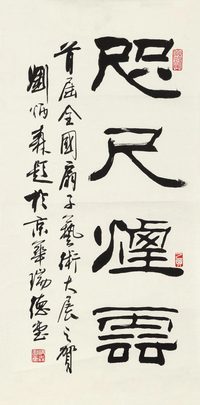 咫尺煙雲
首屆全國扇子藝術大展之賀
劉炳森題於京華瑞德堂